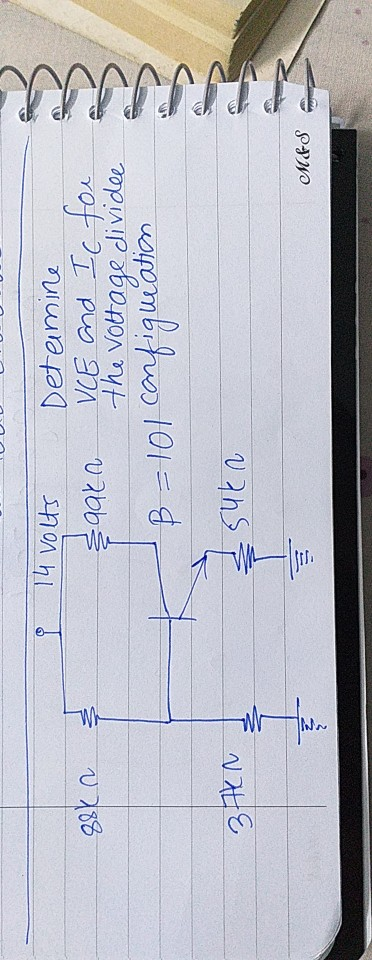 14 volts
Determine
VCE and IC for
the voltage divider
configuration
88kΩ
99kΩ
β = 101
37kΩ
54kΩ
M&S